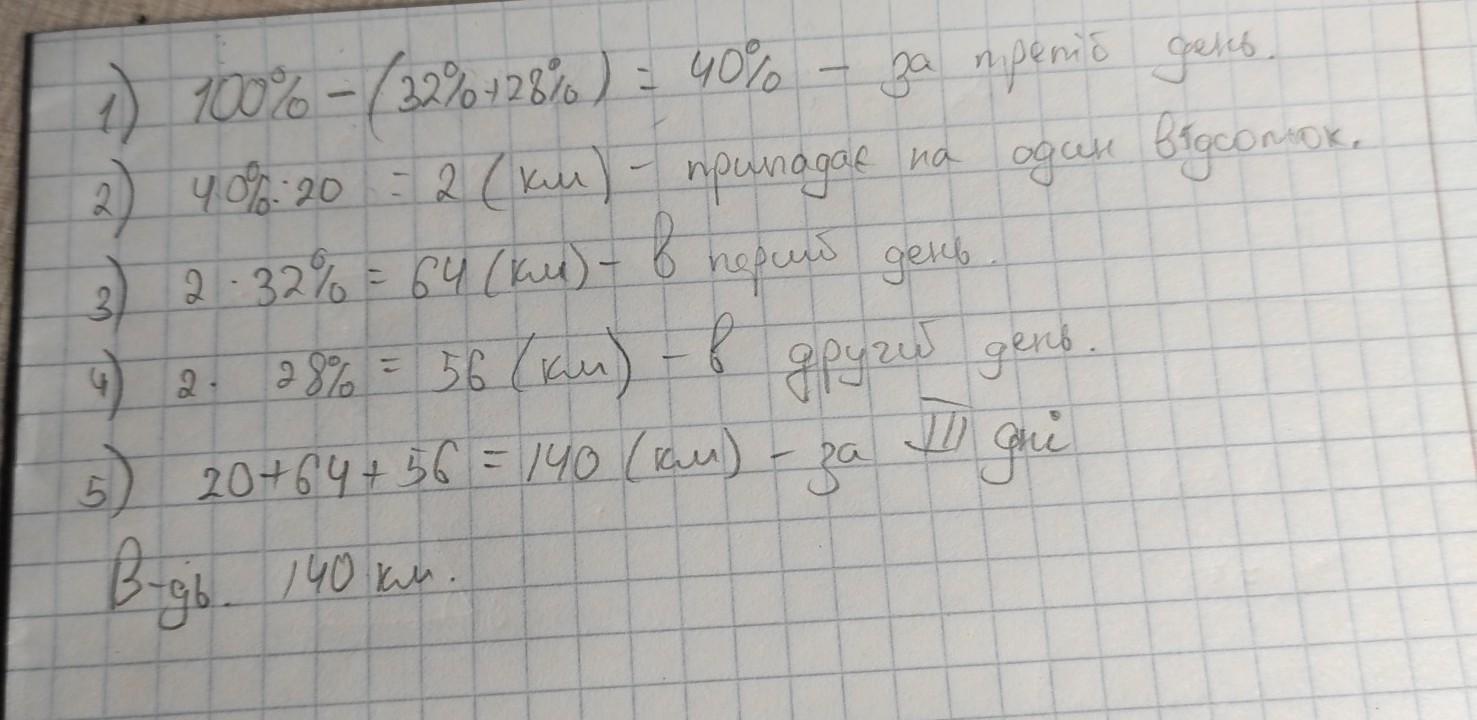 1) 100% - (32%+28%) = 40% - за третій день.
2) 40%:20 = 2 (км) - припадає на один відсоток.
3) 2 · 32% = 64 (км) - в перший день.
4) 2 · 28% = 56 (км) - в другий день.
5) 20+64+56 = 140 (км) - за III дні
В-дь. 140 км.